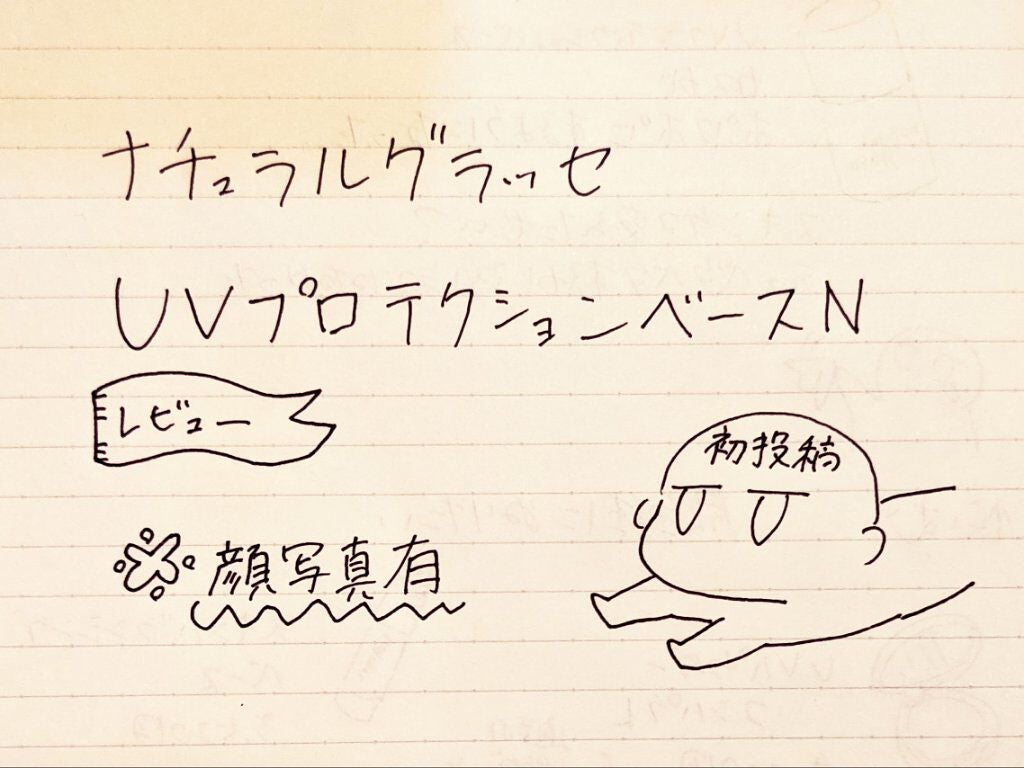 ナチュラルグラッセ
UVプロテクションベースN
レビュー
初投稿
※顔写真有